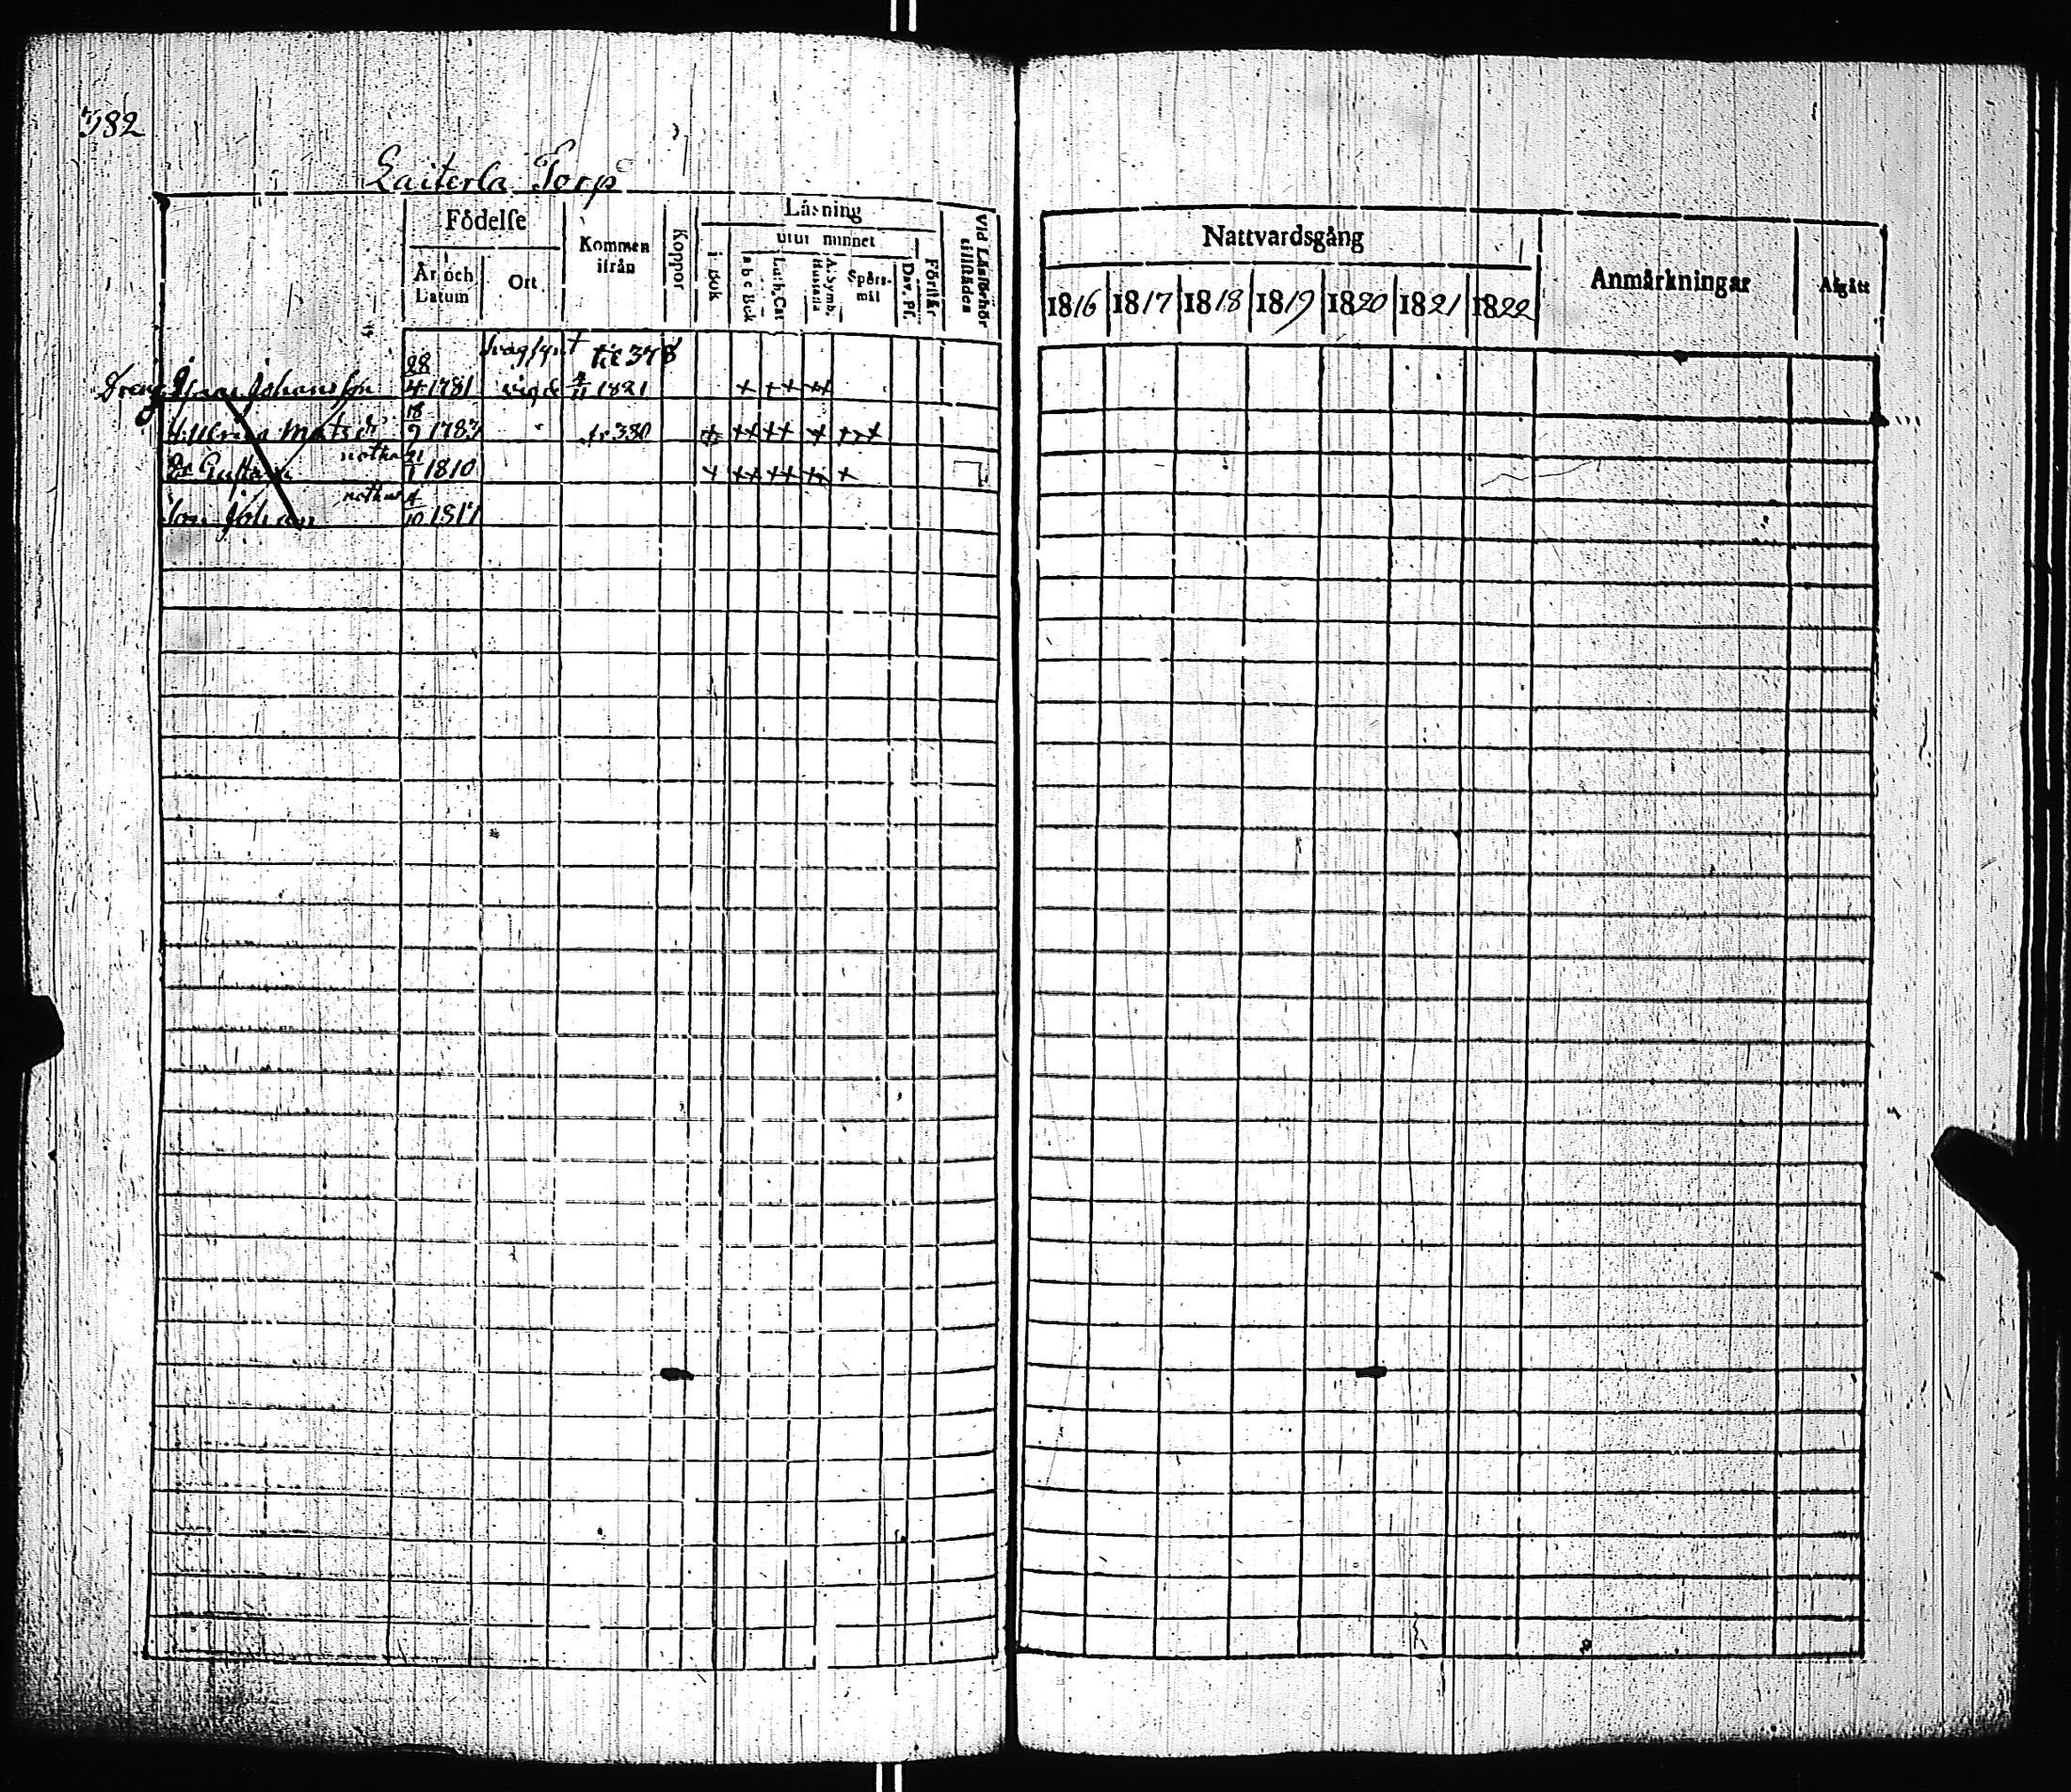 382
Laiterla Torp
Födelse
Kommen ifrån
Koppor
Läsning
Vid Läsförhör tillstädes
utur minnet
Förstår
År och Datum
Ort
i Bok
a b c Bok
Luth. Cat
A. Symb. Hustafla
Spörsmål
Dav. Ps.
Nattvardsgång
Anmärkningar
Afgått
1816 1817 1818 1819 1820 1821 1822
svagsynt til 378
Dreng Isaac Johansson 28/4 1781 vigde 4/11 1821 + ++ ++
H. Ulrica Matsdr 18/9 1783 fr 380 + ++ ++ + +++
notha
Dr Gustava 21/1 1810 + ++ ++ ++ +
nothus
Son Johan 4/10 1817